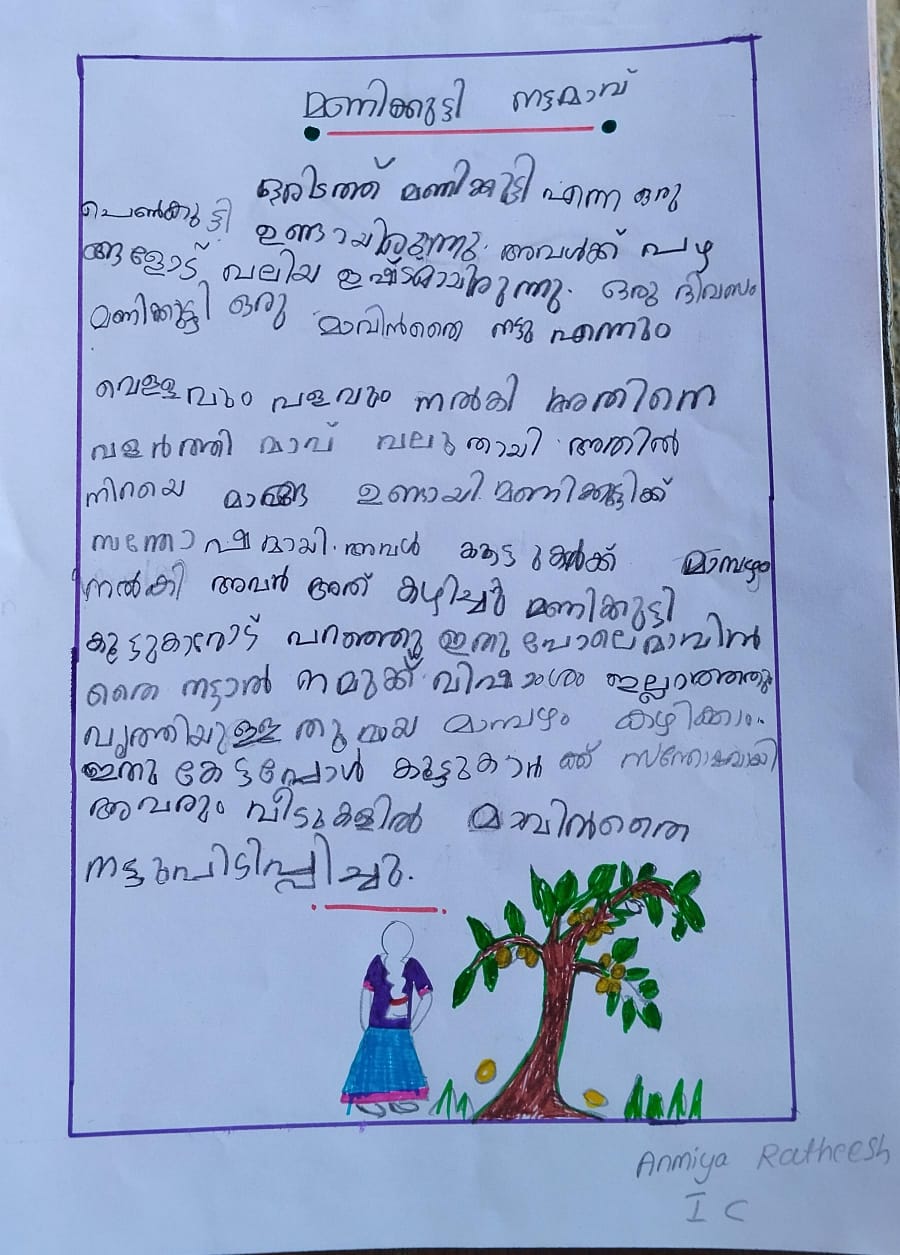 മണിക്കുട്ടി നട്ടമാവ്
ഒരിടത്ത് മണിക്കുട്ടി എന്ന ഒരു
പെൺകുട്ടി ഉണ്ടായിരുന്നു. അവൾക്ക് പഴ
ങ്ങളോട് വലിയ ഇഷ്ടമായിരുന്നു. ഒരു ദിവസം
മണിക്കുട്ടി ഒരു മാവിൻതൈ നട്ടു എന്നും
വെള്ളവും വളവും നൽകി അതിനെ
വളർത്തി മാവ് വലുതായി അതിൽ
നിറയെ മാങ്ങ ഉണ്ടായി. മണിക്കുട്ടിക്ക്
സന്തോഷമായി. അവൾ കൂട്ടുകൾക്ക് മാമ്പഴം
നൽകി അവർ അത് കഴിച്ചു മണിക്കുട്ടി
കൂട്ടുകാരോട് പറഞ്ഞു ഇതു പോലെ മാവിൻ
തൈ നട്ടാൽ നമുക്ക് വിഷാംശം ഇല്ലാത്തതു
വൃത്തിയുള്ളതുമായ മാമ്പഴം കഴിക്കാം..
ഇതു കേട്ടപ്പോൾ കൂട്ടുകാൻക്ക് സന്തോഷമായി
അവരും വീടുകളിൽ മാവിൻതൈ
നട്ടുപിടിപ്പിച്ചു.
Anmiya Ratheesh
I C